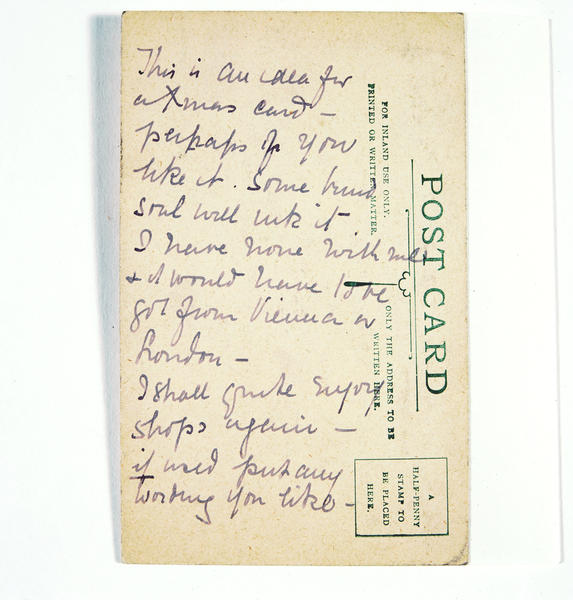 This is an idea for
a Xmas card –
perhaps if you
like it. Some kind
soul will ink it
I have none with me
& it would have to be
got from Vienna or
London –
I shall quite enjoy
shops again –
if used put any
wording you like –
POST CARD
FOR INLAND USE ONLY.
PRINTED OR WRITTEN MATTER.
3
ONLY THE ADDRESS TO BE
WRITTEN HERE.
A
HALF-PENNY
STAMP TO
BE PLACED
HERE.